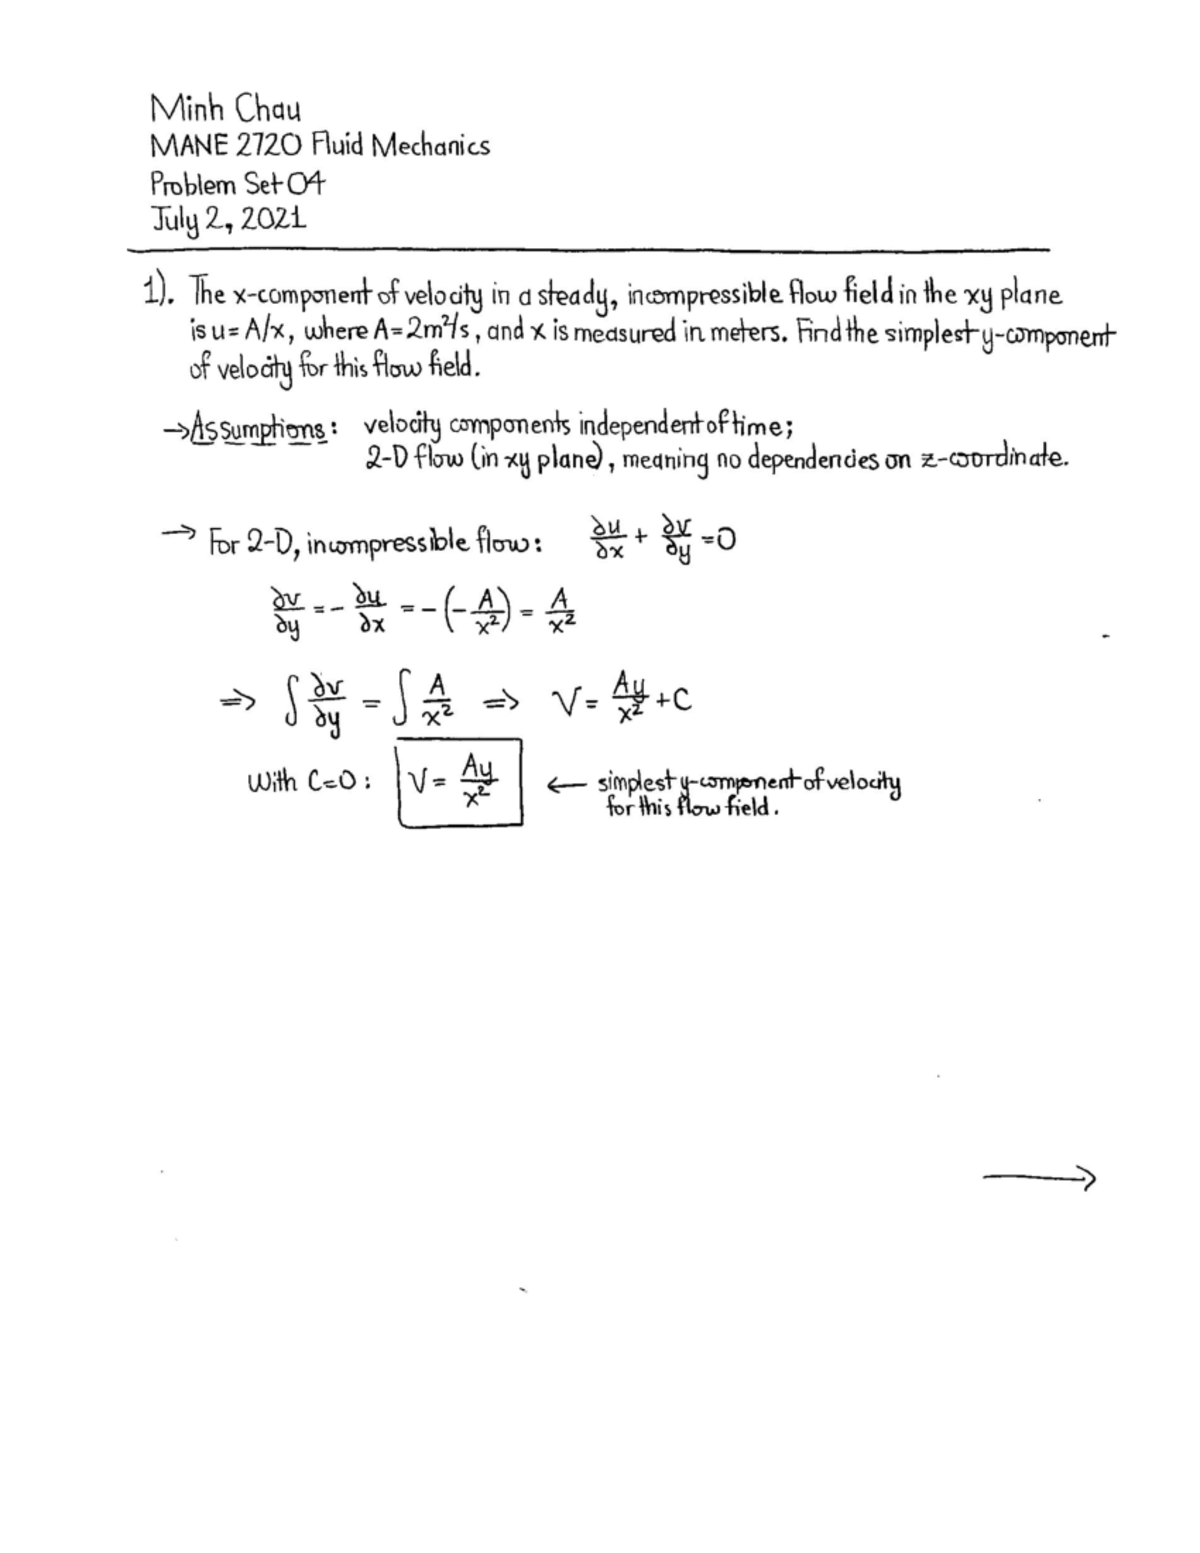 Minh Chau
MANE 2720 Fluid Mechanics
Problem Set 04
July 2, 2021
1). The x-component of velocity in a steady, incompressible flow field in the xy plane
is u= A/x, where A=2m²/s, and x is measured in meters. Find the simplest y-component
of velocity for this flow field.
→Assumptions: velocity components independent of time;
2-D flow (in xy plane), meaning no dependencies on z-coordinate.
→ For 2-D, incompressible flow: ∂u/∂x + ∂v/∂y =0
∂v/∂y = - ∂u/∂x = -(-A/x²) = A/x²
⇒ ∫ ∂v/∂y = ∫ A/x² ⇒ V= Ay/x² +C
With C=0: V= Ay/x² ← simplest y-component of velocity
for this flow field.
→